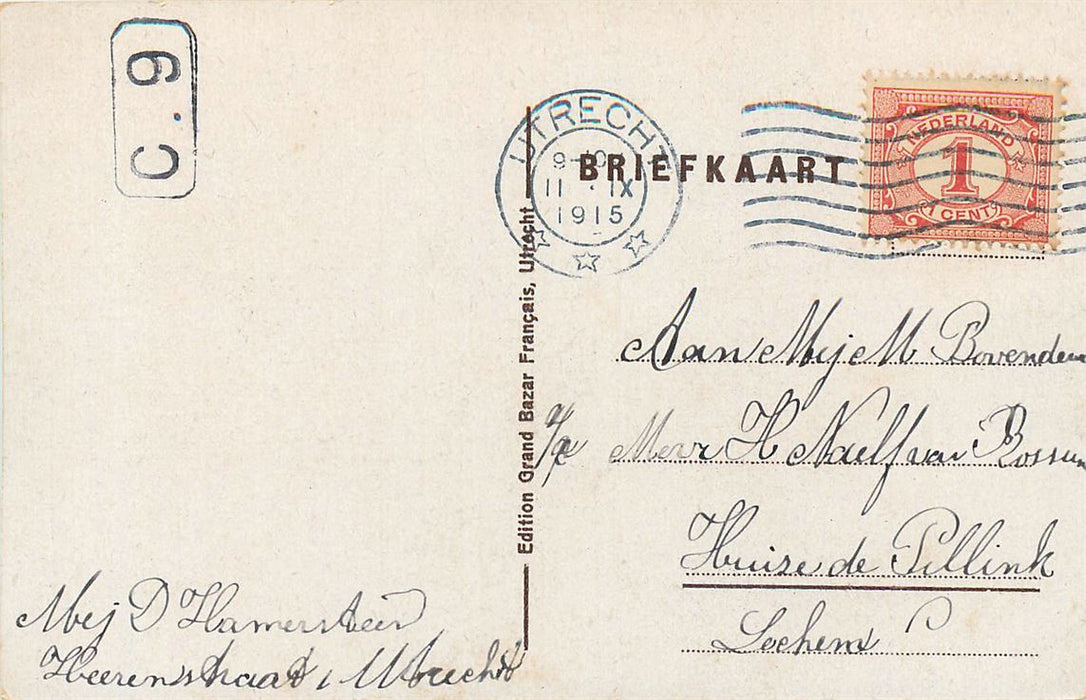 C.9
UTRECHT
9-10
11 . IX
1915
BRIEFKAART
NEDERLAND
1
1 CENT
Edition Grand Bazar Français, Utrecht
Aan Mej M Bovender
a/c Mevr H Naeff van Rossum
Huize de Pillink
Lochem
Mej D Hamersteen
Heerenstraat, Utrecht